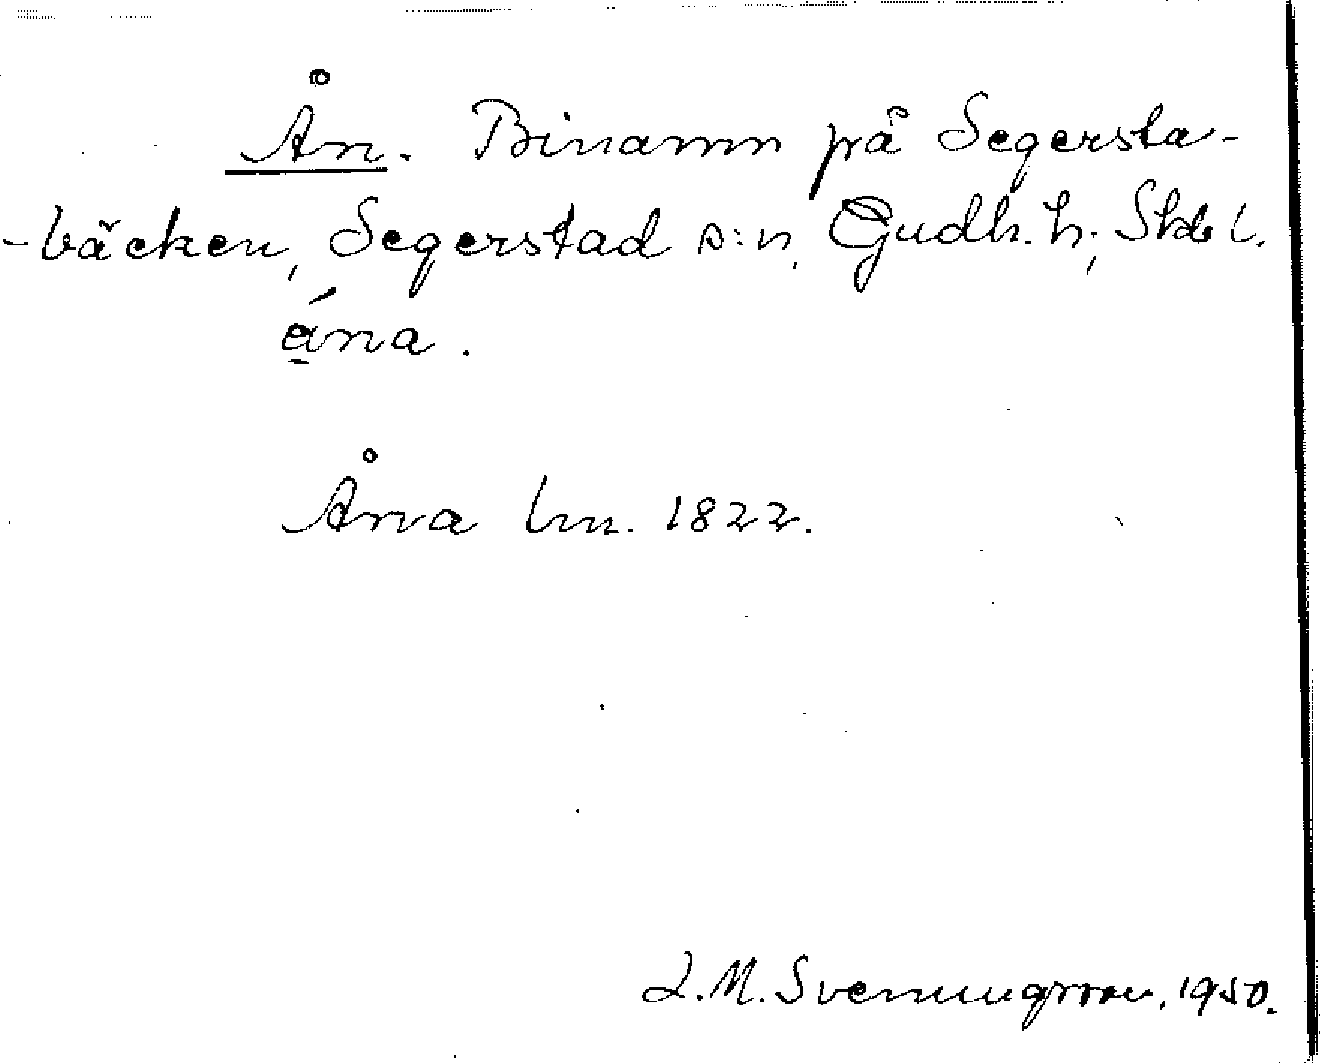 Ån. Binamn på Segersta-
-bäcken, Segerstad s:n, Gudh. h., Skbl.
ána.
Åna lm. 1822.
L.M. Svenungsson, 1950.